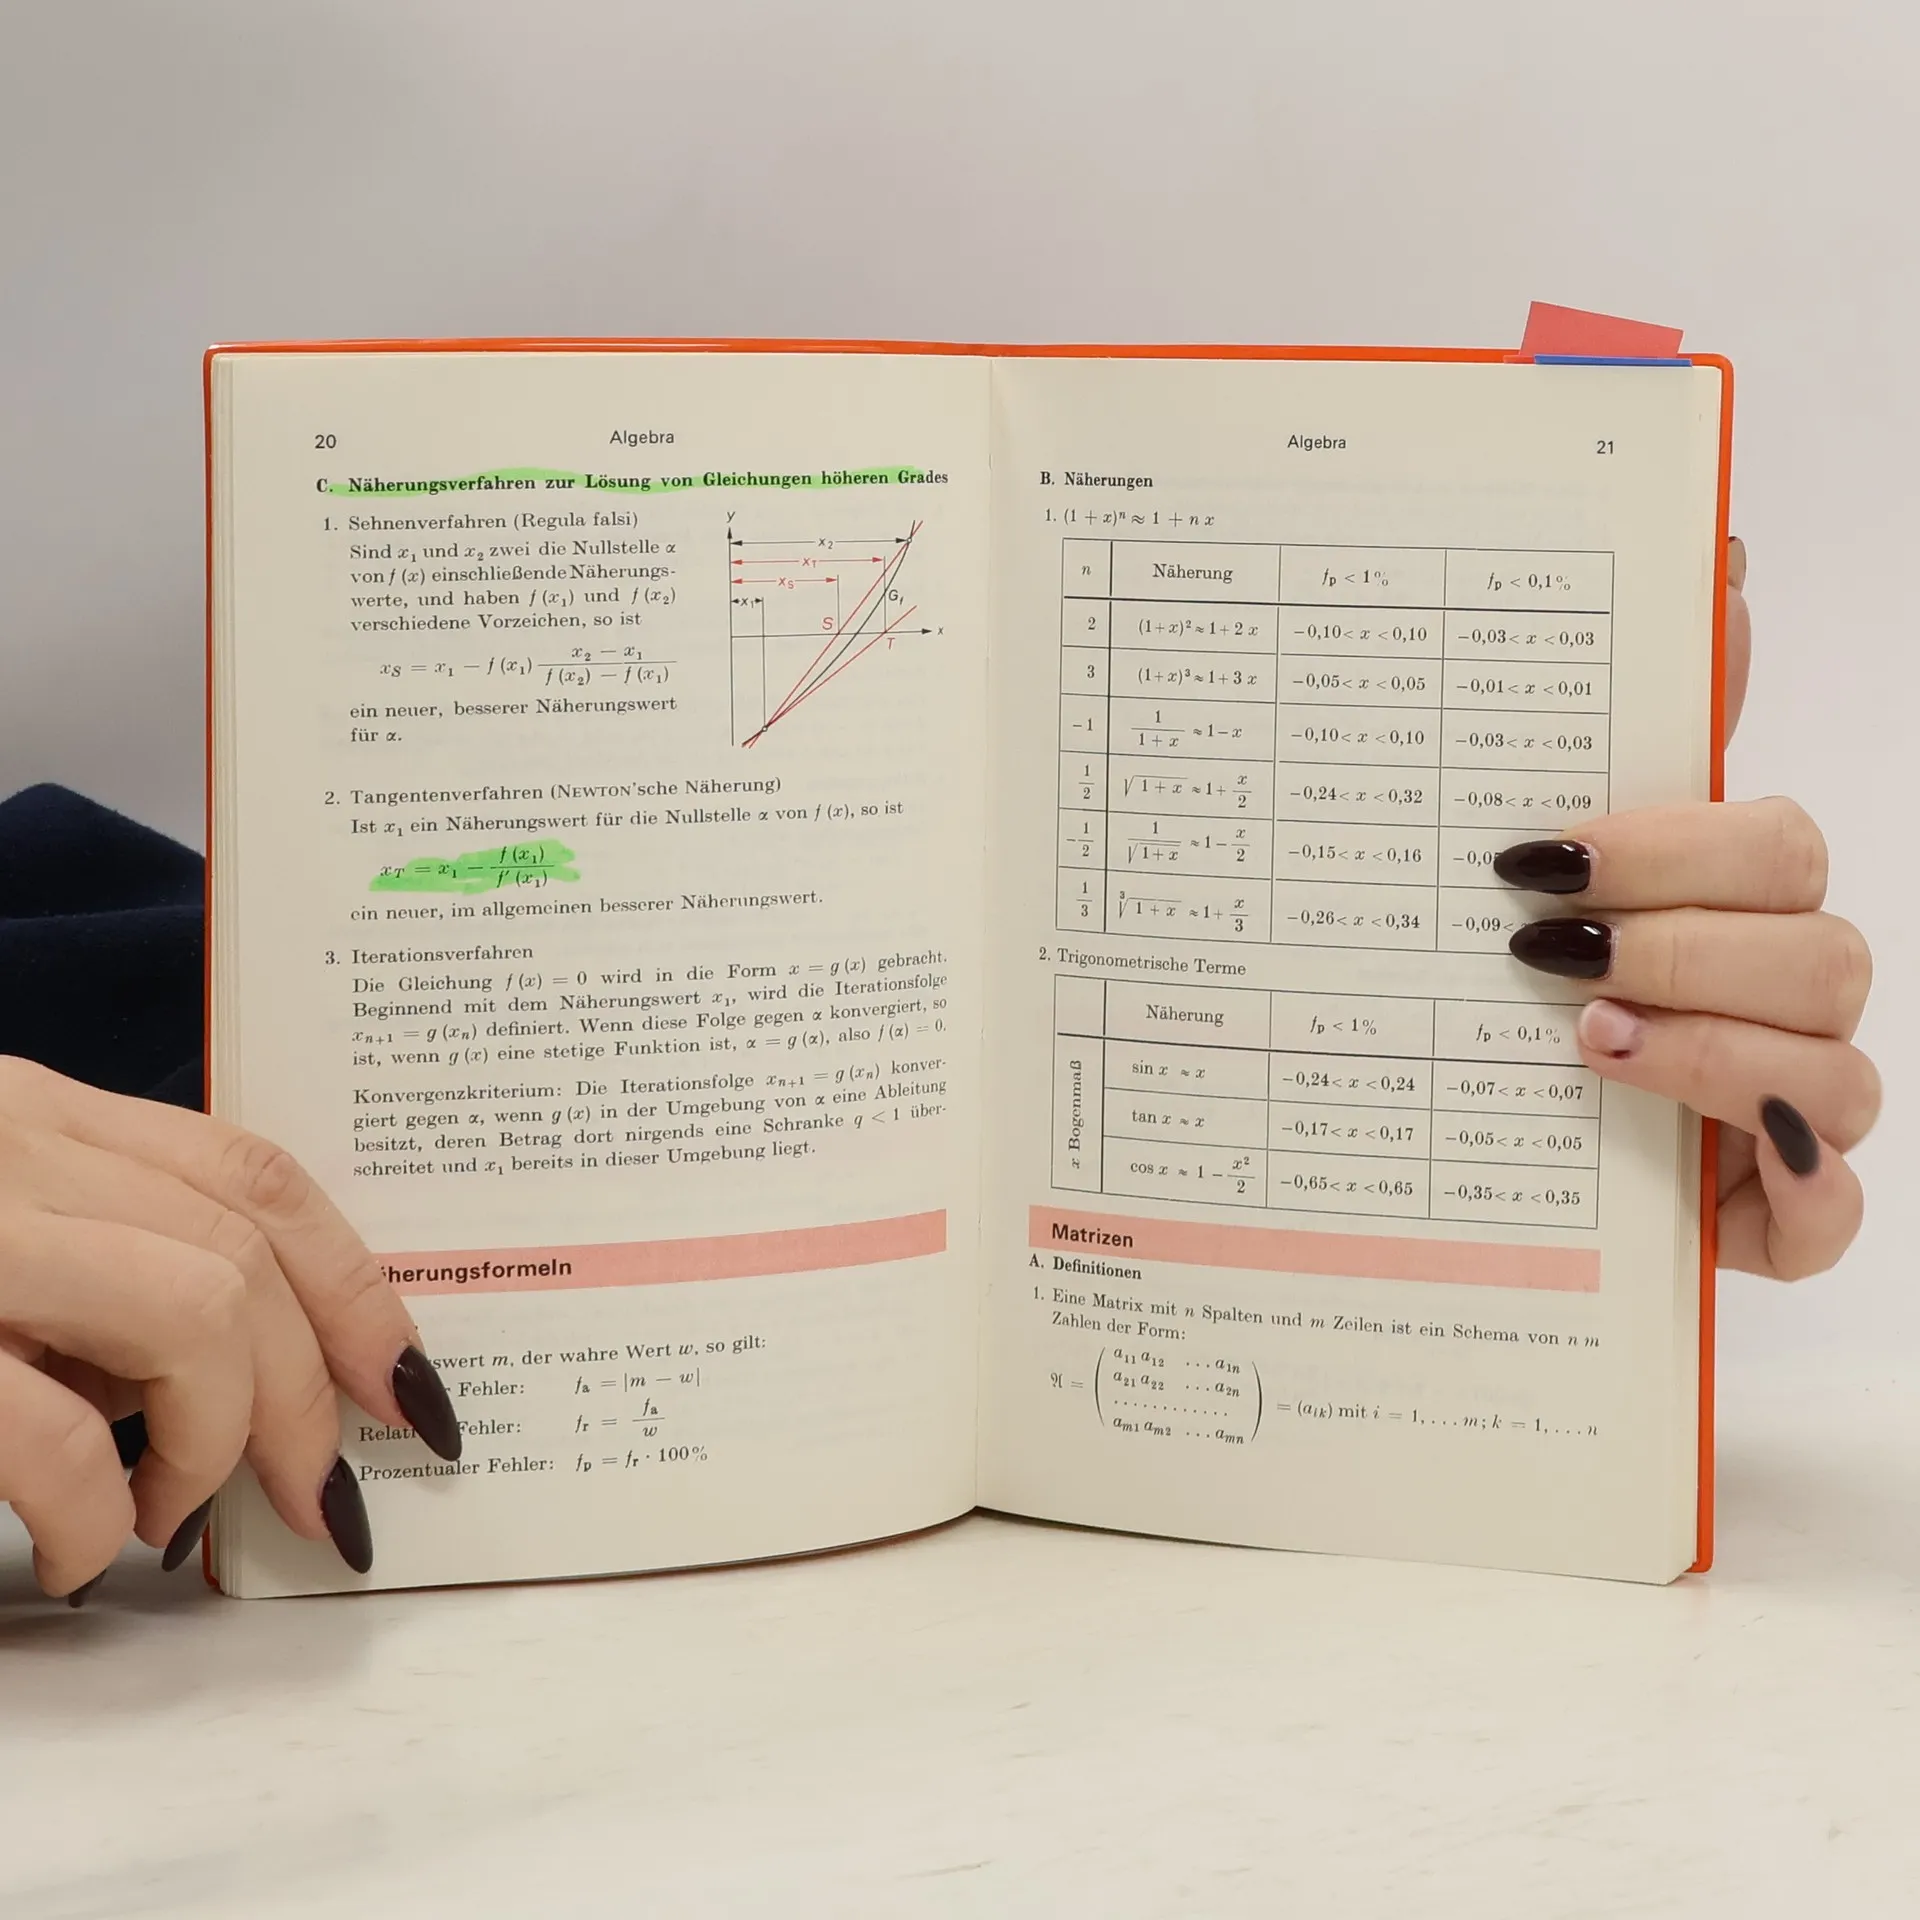 20
Algebra
C. Näherungsverfahren zur Lösung von Gleichungen höheren Grades
1. Sehnenverfahren (Regula falsi)
Sind x₁ und x₂ zwei die Nullstelle α
von f (x) einschließende Näherungs-
werte, und haben f (x₁) und f (x₂)
verschiedene Vorzeichen, so ist
x_S = x₁ − f (x₁) (x₂ − x₁) / (f (x₂) − f (x₁))
ein neuer, besserer Näherungswert
für α.
y
x₂
x_T
x_S
x₁
G_f
S
T
x
2. Tangentenverfahren (NEWTON'sche Näherung)
Ist x₁ ein Näherungswert für die Nullstelle α von f (x), so ist
x_T = x₁ − f (x₁) / f′ (x₁)
ein neuer, im allgemeinen besserer Näherungswert.
3. Iterationsverfahren
Die Gleichung f (x) = 0 wird in die Form x = g (x) gebracht.
Beginnend mit dem Näherungswert x₁, wird die Iterationsfolge
xₙ₊₁ = g (xₙ) definiert. Wenn diese Folge gegen α konvergiert, so
ist, wenn g (x) eine stetige Funktion ist, α = g (α), also f (α) = 0.
Konvergenzkriterium: Die Iterationsfolge xₙ₊₁ = g (xₙ) konver-
giert gegen α, wenn g (x) in der Umgebung von α eine Ableitung
besitzt, deren Betrag dort nirgends eine Schranke q < 1 über-
schreitet und x₁ bereits in dieser Umgebung liegt.
herungsformeln
swert m, der wahre Wert w, so gilt:
Fehler: fₐ = |m − w|
Fehler: f_r = fₐ / w
Prozentualer Fehler: f_p = f_r · 100%
Algebra
21
B. Näherungen
1. (1 + x)ⁿ ≈ 1 + n x
n Näherung f_p < 1% f_p < 0,1%
2 (1+x)² ≈ 1+2 x −0,10< x <0,10 −0,03< x <0,03
3 (1+x)³ ≈ 1+3 x −0,05< x <0,05 −0,01< x <0,01
−1 1/(1+x) ≈ 1−x −0,10< x <0,10 −0,03< x <0,03
1/2 √(1+x) ≈ 1+ x/2 −0,24< x <0,32 −0,08< x <0,09
−1/2 1/√(1+x) ≈ 1− x/2 −0,15< x <0,16 −0,0
1/3 ∛(1+x) ≈ 1+ x/3 −0,26< x <0,34 −0,09<
2. Trigonometrische Terme
Näherung f_p < 1% f_p < 0,1%
x Bogenmaß
sin x ≈ x −0,24< x <0,24 −0,07< x <0,07
tan x ≈ x −0,17< x <0,17 −0,05< x <0,05
cos x ≈ 1 − x²/2 −0,65< x <0,65 −0,35< x <0,35
Matrizen
A. Definitionen
1. Eine Matrix mit n Spalten und m Zeilen ist ein Schema von n m
Zahlen der Form:
a₁₁ a₁₂ ... a₁ₙ
a₂₁ a₂₂ ... a₂ₙ
𝔄 = ............ = (aᵢₖ) mit i = 1, ... m; k = 1, ... n
aₘ₁ aₘ₂ ... aₘₙ